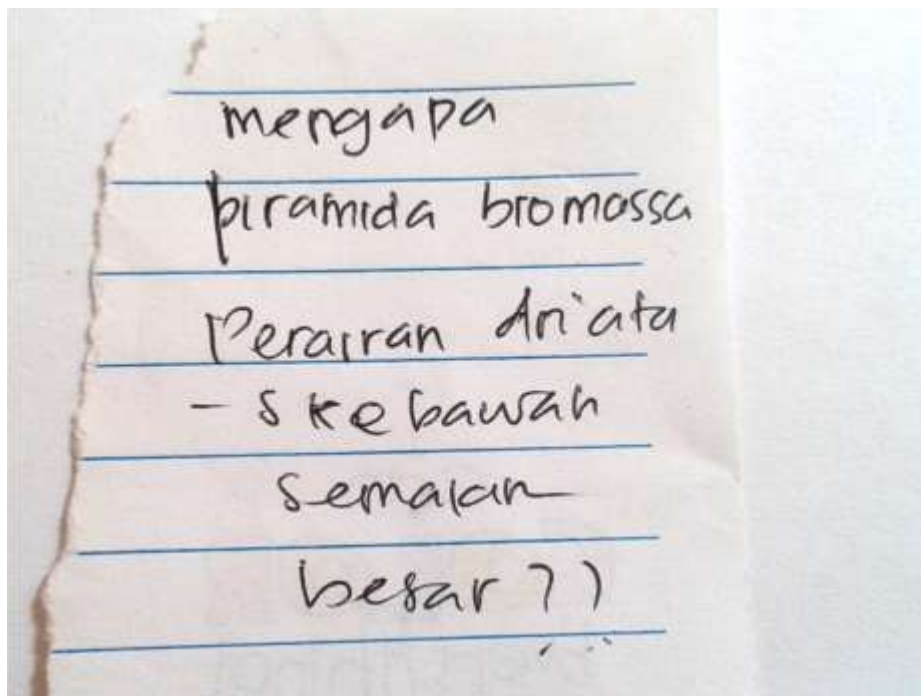 mengapa
piramida biomassa
Perairan dri ata
- s ke bawah
semakan
besar ??